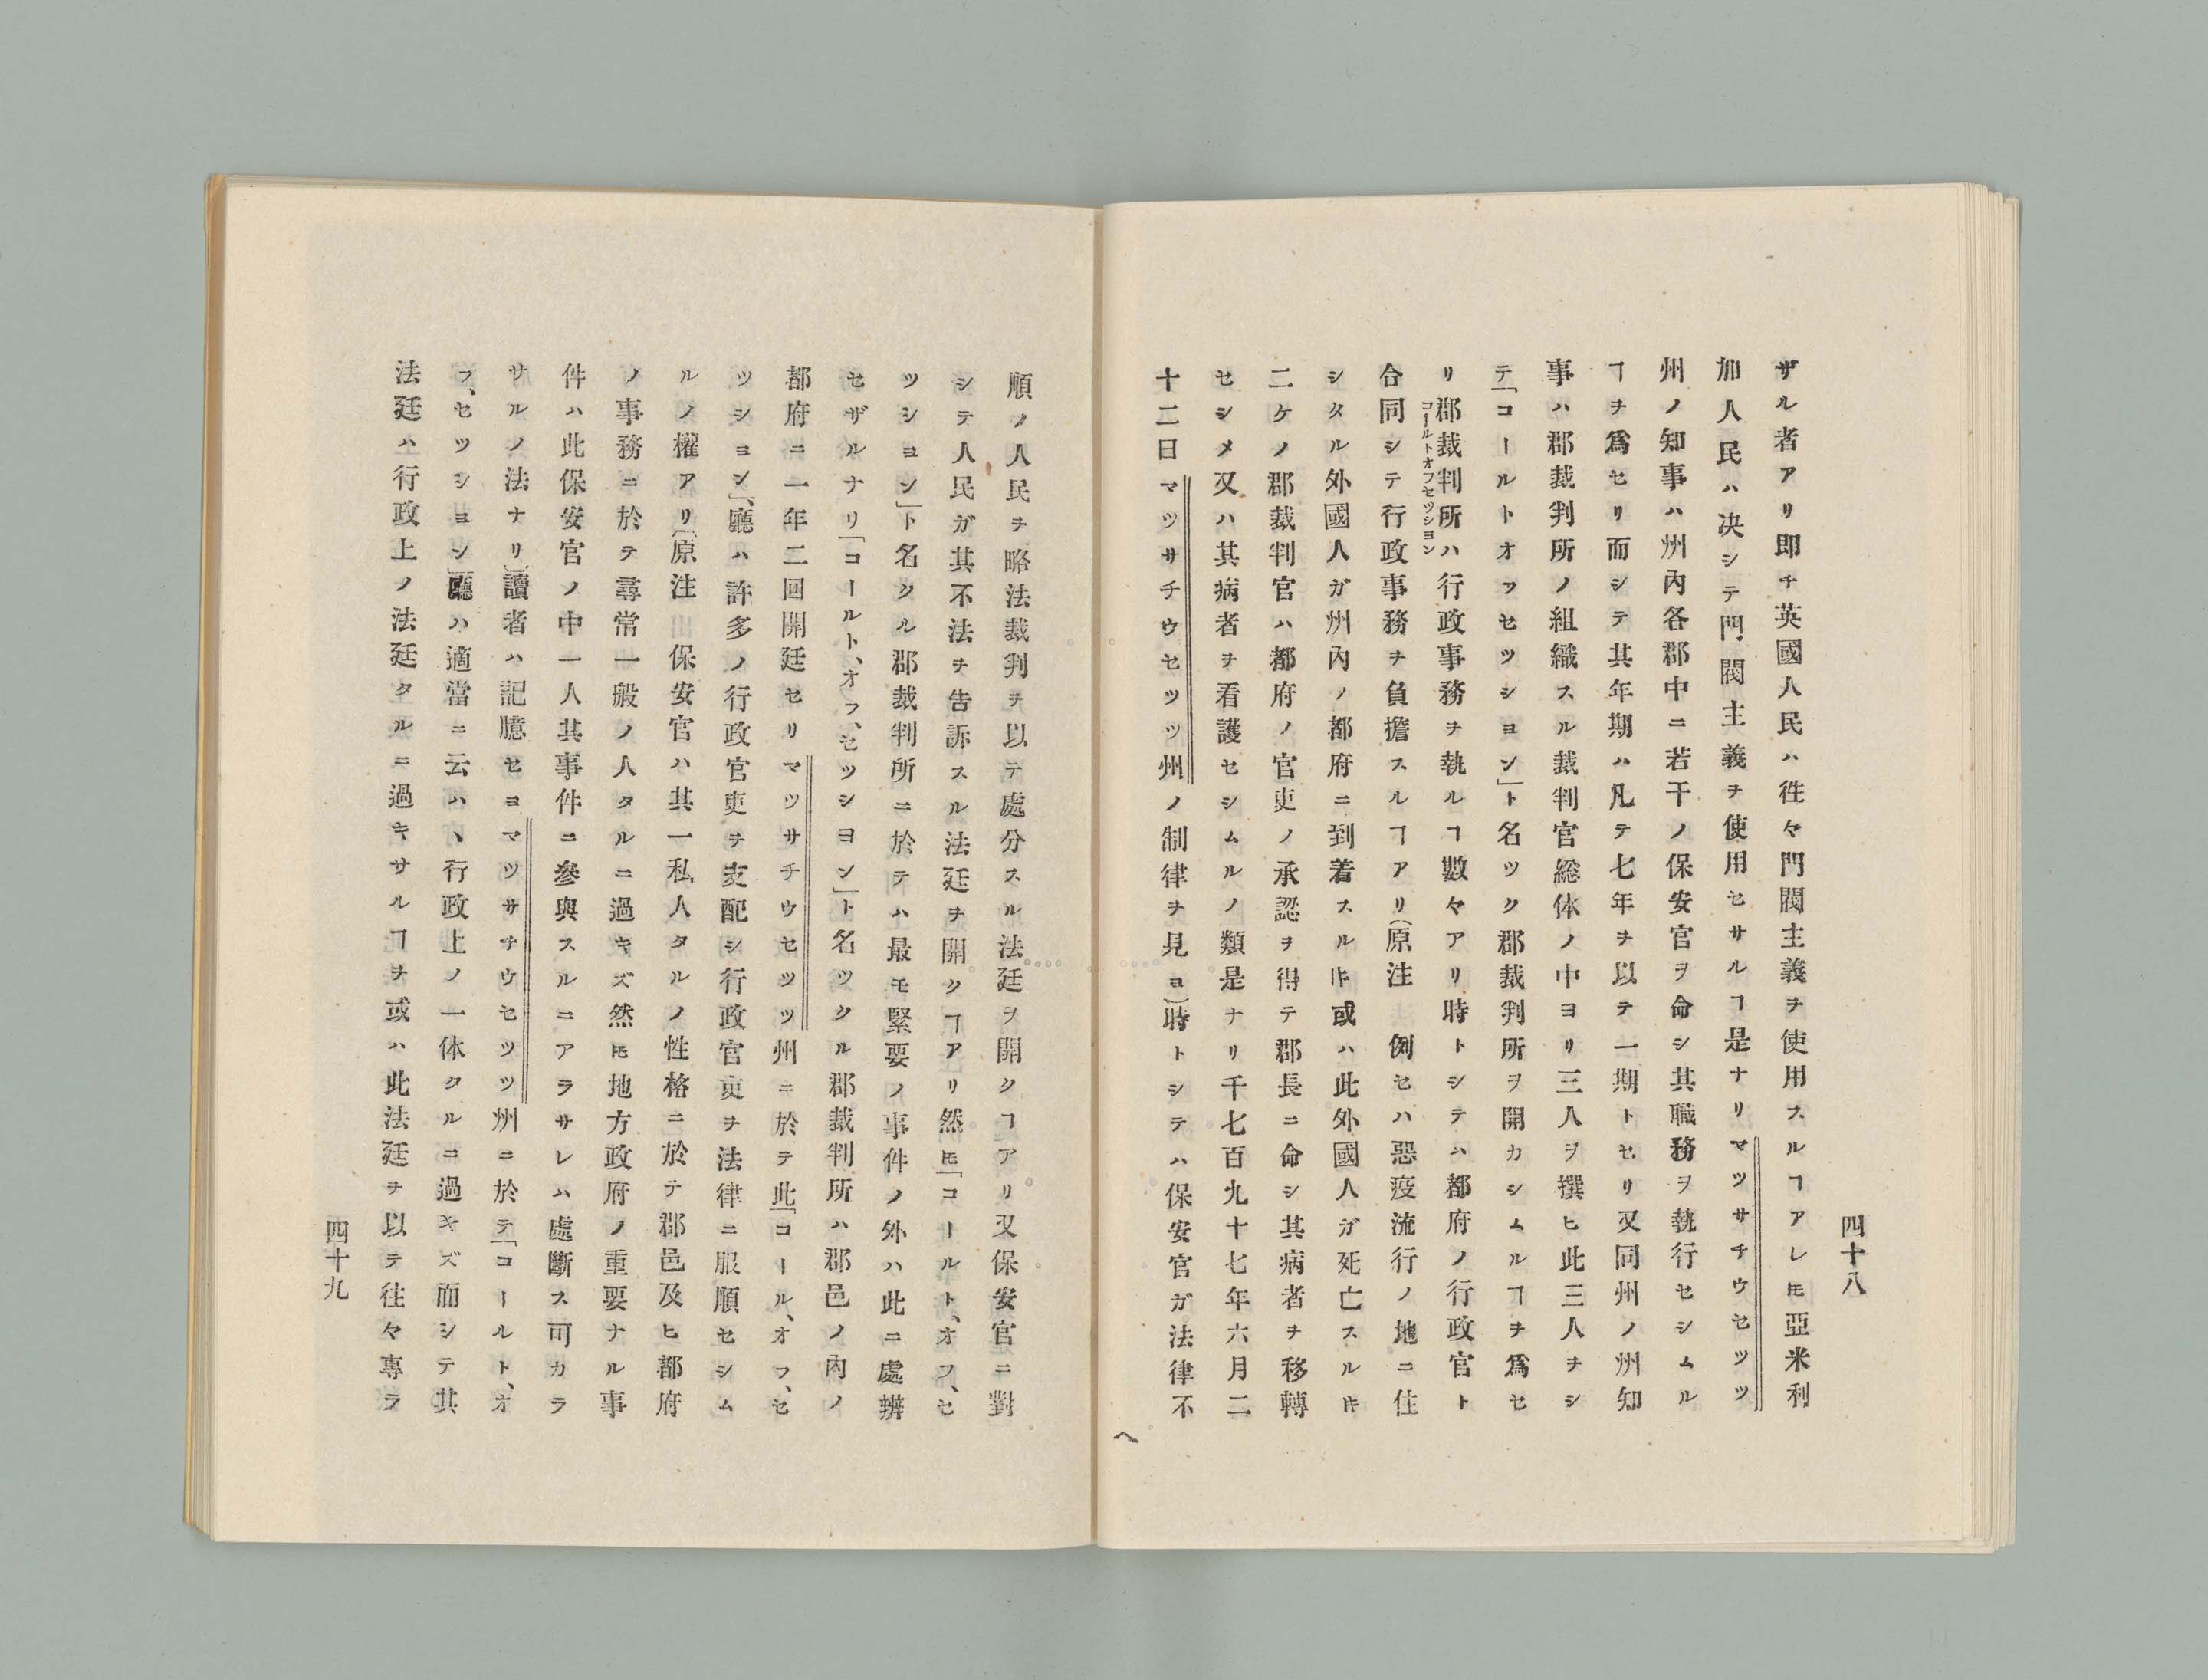 四十八
ザル者アリ即チ英國人民ハ徃々門閥主義ヲ使用スルヿアレ𪜈亞米利
加人民ハ决シテ門閥主義ヲ使用セサルヿ是ナリマツサチウセツツ
州ノ知事ハ州內各郡中ニ若干ノ保安官ヲ命シ其職務ヲ執行セシムル
ヿヲ爲セリ而シテ其年期ハ凡テ七年ヲ以テ一期トセリ又同州ノ州知
事ハ郡裁判所ノ組織スル裁判官総体ノ中ヨリ三人ヲ撰ヒ此三人ヲシ
テ「コールトオッセツシヨン」ト名ツク郡裁判所ヲ開カシムルヿヲ爲セ
リ郡裁判所ハ行政事務ヲ執ルヿ數々アリ時トシテハ都府ノ行政官ト
コールトオフセツシヨン
合同シテ行政事務ヲ負擔スルヿアリ(原注 例セハ惡疫流行ノ地ニ住
シタル外國人ガ州內ノ都府ニ到着スル𪜈或ハ此外國人ガ死亡スル𪜈
二ケノ郡裁判官ハ都府ノ官吏ノ承認ヲ得テ郡長ニ命シ其病者ヲ移轉
セシメ又ハ其病者ヲ看護セシムルノ類是ナリ千七百九十七年六月二
十二日マツサチウセツツ州ノ制律ヲ見ヨ)時トシテハ保安官ガ法律不
へ
順ノ人民ヲ略法裁判ヲ以テ處分スル法廷ヲ開クヿアリ又保安官ニ對
シテ人民ガ其不法ヲ告訴スル法廷ヲ開クヿアリ然𪜈「コールト、オフ、セ
ツシヨン」ト名クル郡裁判所ニ於テハ最モ緊要ノ事件ノ外ハ此ニ處辨
セザルナリ「コールト、オフ、セツシヨン」ト名ツクル郡裁判所ハ郡邑ノ內ノ
都府ニ一年二回開廷セリマツサチウセツツ州ニ於テ此「コール、オフ、セ
ツシヨン」廳ハ許多ノ行政官吏ヲ支配シ行政官吏ヲ法律ニ服順セシム
ルノ權アリ(原注 保安官ハ其一私人タルノ性格ニ於テ郡邑及ヒ都府
ノ事務ニ於テ尋常一般ノ人タルニ過キズ然𪜈地方政府ノ重要ナル事
件ハ此保安官ノ中一人其事件ニ參與スルニアラサレハ處斷ス可カラ
サルノ法ナリ)讀者ハ記臆セヨマツサチウセツツ州ニ於テ「コールト、オ
フ、セツシヨン」廳ハ適當ニ云ハヽ行政上ノ一体タルニ過キズ而シテ其
法廷ハ行政上ノ法廷タルニ過キサルヿヲ或ハ此法廷ヲ以テ往々專ラ
四十九